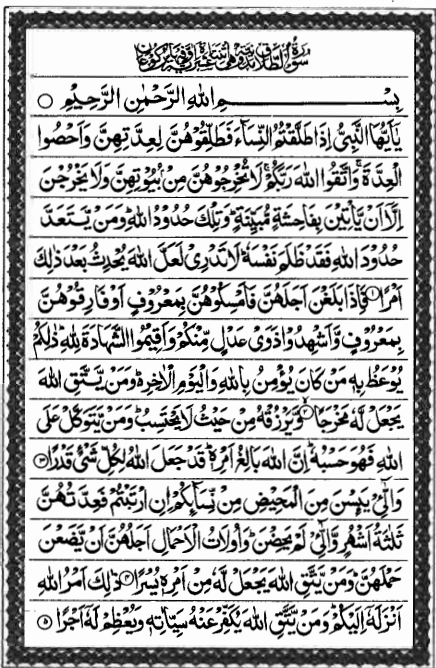 سورة الطلاق مدنية وهي اثنتا عشرة اية وفيها ركوعان
بِسْمِ اللهِ الرَّحْمٰنِ الرَّحِيْمِ ○
يٰۤاَيُّهَا النَّبِىُّ اِذَا طَلَّقْتُمُ النِّسَآءَ فَطَلِّقُوْهُنَّ لِعِدَّتِهِنَّ وَاَحْصُوا
الْعِدَّةَ ۚ وَاتَّقُوا اللهَ رَبَّكُمْ ۚ لَا تُخْرِجُوْهُنَّ مِنْۢ بُيُوْتِهِنَّ وَلَا يَخْرُجْنَ
اِلَّاۤ اَنْ يَّاْتِيْنَ بِفَاحِشَةٍ مُّبَيِّنَةٍ ؕ وَتِلْكَ حُدُوْدُ اللهِ ؕ وَمَنْ يَّتَعَدَّ
حُدُوْدَ اللهِ فَقَدْ ظَلَمَ نَفْسَهٗ ؕ لَا تَدْرِىْ لَعَلَّ اللهَ يُحْدِثُ بَعْدَ ذٰلِكَ
اَمْرًا ۱ فَاِذَا بَلَغْنَ اَجَلَهُنَّ فَاَمْسِكُوْهُنَّ بِمَعْرُوْفٍ اَوْ فَارِقُوْهُنَّ
بِمَعْرُوْفٍ وَّاَشْهِدُوْا ذَوَىْ عَدْلٍ مِّنْكُمْ وَاَقِيْمُوا الشَّهَادَةَ لِلّٰهِ ؕ ذٰلِكُمْ
يُوْعَظُ بِهٖ مَنْ كَانَ يُؤْمِنُ بِاللهِ وَالْيَوْمِ الْاٰخِرِ ؕ وَمَنْ يَّتَّقِ اللهَ
يَجْعَلْ لَّهٗ مَخْرَجًا ۲ وَّيَرْزُقْهُ مِنْ حَيْثُ لَا يَحْتَسِبُ ؕ وَمَنْ يَّتَوَكَّلْ عَلَى
اللهِ فَهُوَ حَسْبُهٗ ؕ اِنَّ اللهَ بَالِغُ اَمْرِهٖ ؕ قَدْ جَعَلَ اللهُ لِكُلِّ شَىْءٍ قَدْرًا ۳
وَالّٰٓـىِٔۡ يَئِسْنَ مِنَ الْمَحِيْضِ مِنْ نِّسَآئِكُمْ اِنِ ارْتَبْتُمْ فَعِدَّتُهُنَّ
ثَلٰثَةُ اَشْهُرٍ وَّالّٰٓـىِٔۡ لَمْ يَحِضْنَ ؕ وَاُولَاتُ الْاَحْمَالِ اَجَلُهُنَّ اَنْ يَّضَعْنَ
حَمْلَهُنَّ ؕ وَمَنْ يَّتَّقِ اللهَ يَجْعَلْ لَّهٗ مِنْ اَمْرِهٖ يُسْرًا ۴ ذٰلِكَ اَمْرُ اللهِ
اَنْزَلَهٗۤ اِلَيْكُمْ ؕ وَمَنْ يَّتَّقِ اللهَ يُكَفِّرْ عَنْهُ سَيِّاٰتِهٖ وَيُعْظِمْ لَهٗۤ اَجْرًا ۵